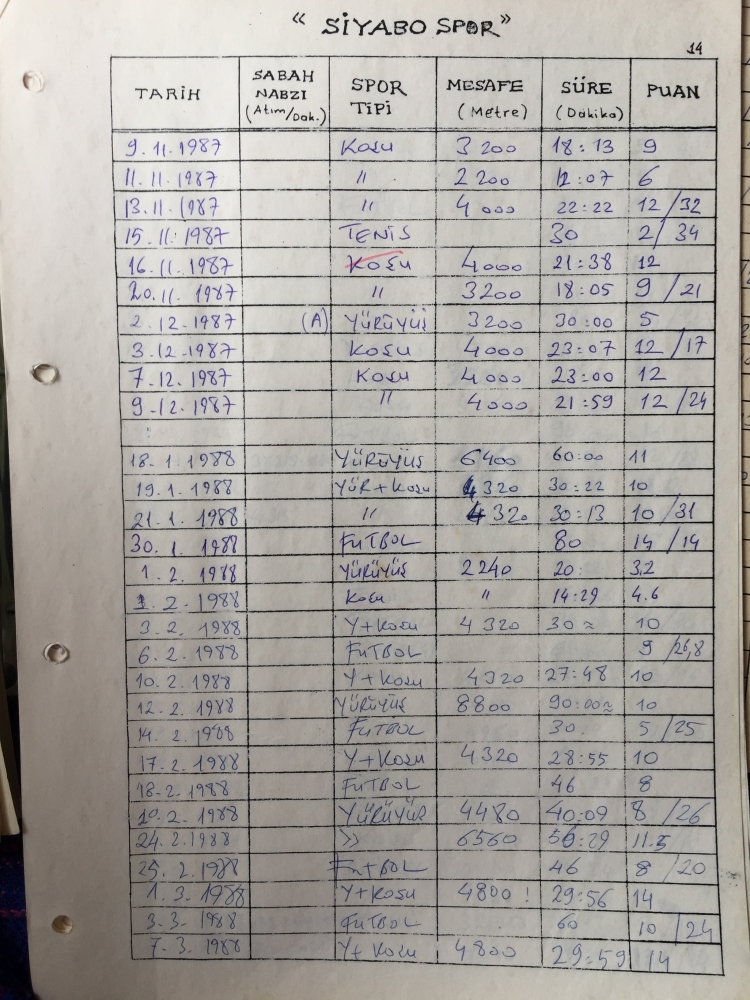 “SİYABO SPOR”
14
TARİH SABAH NABZI (Atım/Dak.) SPOR TİPİ MESAFE (Metre) SÜRE (Dakika) PUAN
9.11.1987 Koşu 3200 18:13 9
11.11.1987 " 2200 12:07 6
13.11.1987 " 4000 22:22 12/32
15.11.1987 TENİS 30 2/34
16.11.1987 Koşu 4000 21:38 12
20.11.1987 " 3200 18:05 9/21
2.12.1987 (A) YÜRÜYÜŞ 3200 30:00 5
3.12.1987 Koşu 4000 23:07 12/17
7.12.1987 Koşu 4000 23:00 12
9.12.1987 " 4000 21:59 12/24
18.1.1988 YÜRÜYÜŞ 6400 60:00 11
19.1.1988 YÜR+Koşu 4320 30:22 10
21.1.1988 " 4320 30:13 10/31
30.1.1988 FUTBOL 80 14/14
1.2.1988 YÜRÜYÜŞ 2240 20: 3,2
1.2.1988 Koşu " 14:29 4.6
3.2.1988 Y+Koşu 4320 30≈ 10
6.2.1988 FUTBOL 9/26,8
10.2.1988 Y+Koşu 4320 27:48 10
12.2.1988 YÜRÜYÜŞ 8800 90:00≈ 10
14.2.1988 FUTBOL 30. 5/25
17.2.1988 Y+Koşu 4320 28:55 10
18.2.1988 FUTBOL 46 8
2.1988 YÜRÜYÜŞ 4480 40:09 8/26
24.2.1988 >> 6560 56:29 11.5
25.2.1988 FUTBOL 46 8/20
1.3.1988 Y+Koşu 4800! 29:56 14
3.3.1988 FUTBOL 60 10/24
7.3.1988 Y+Koşu 4800 29:59 14